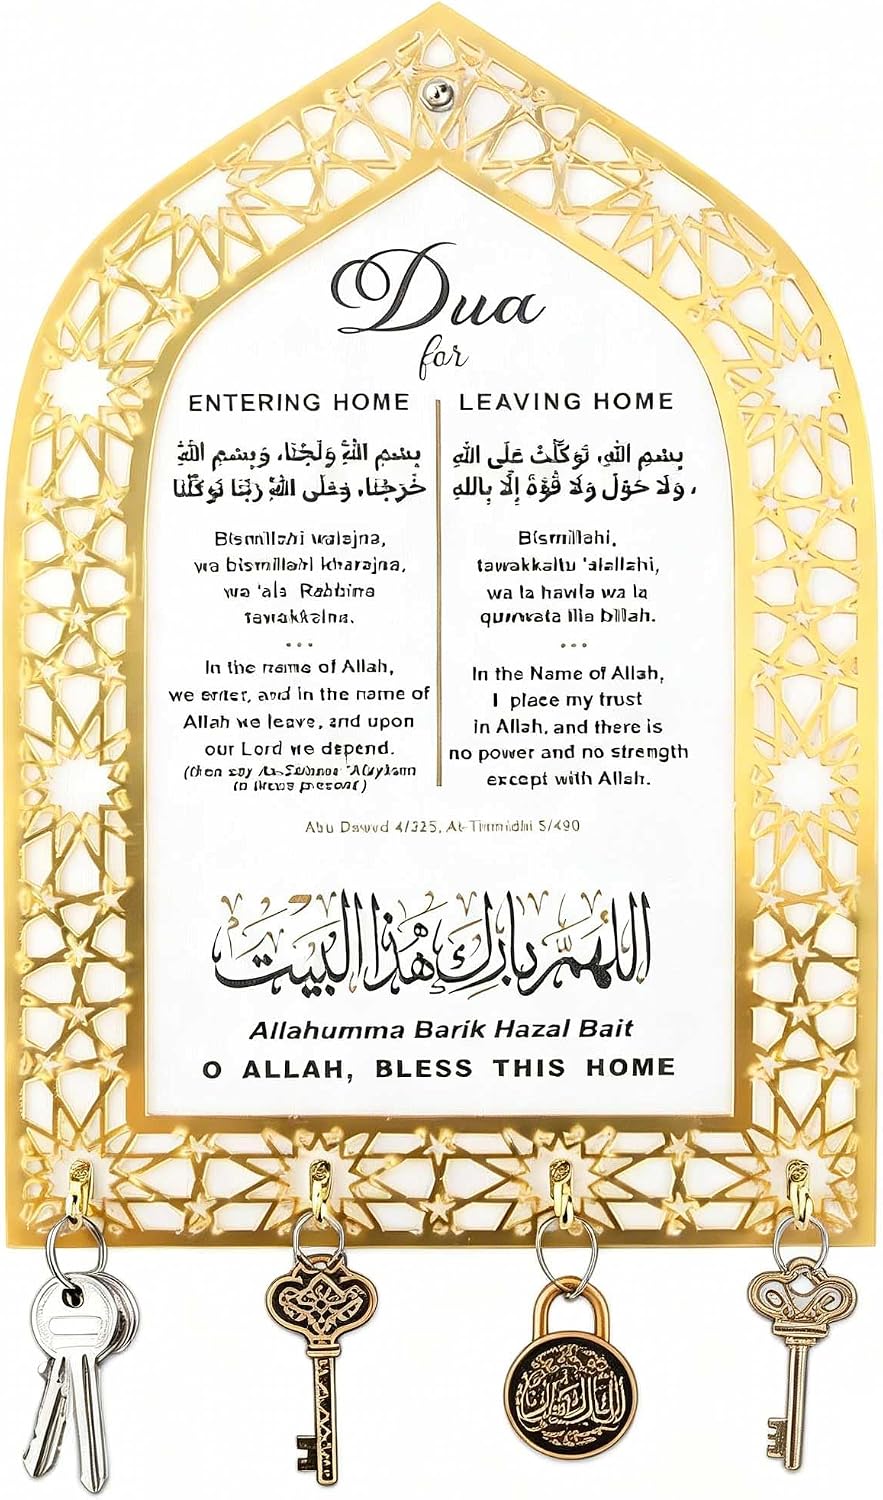 Dua
for
ENTERING HOME
بِسْمِ اللهِ وَلَجْنَا، وَبِسْمِ اللهِ
خَرَجْنَا، وَعَلَى اللهِ رَبِّنَا تَوَكَّلْنَا
Bismillahi walajna,
wa bismillahi kharajna,
wa 'ala Rabbina
tawakkalna.
...
In the name of Allah,
we enter, and in the name of
Allah we leave, and upon
our Lord we depend.
(then say As-Salamu 'Alaykum
LEAVING HOME
بِسْمِ اللهِ، تَوَكَّلْتُ عَلَى اللهِ
، وَلَا حَوْلَ وَلَا قُوَّةَ إِلَّا بِاللهِ
Bismillahi,
tawakkaltu 'alallahi,
wa la hawla wa la
quwwata illa billah.
...
In the Name of Allah,
I place my trust
in Allah, and there is
no power and no strength
except with Allah.
Abu Dawud 4/325, At-Tirmidhi 5/490
اللهُمَّ بَارِكْ هٰذَا الْبَيْت
Allahumma Barik Hazal Bait
O ALLAH, BLESS THIS HOME